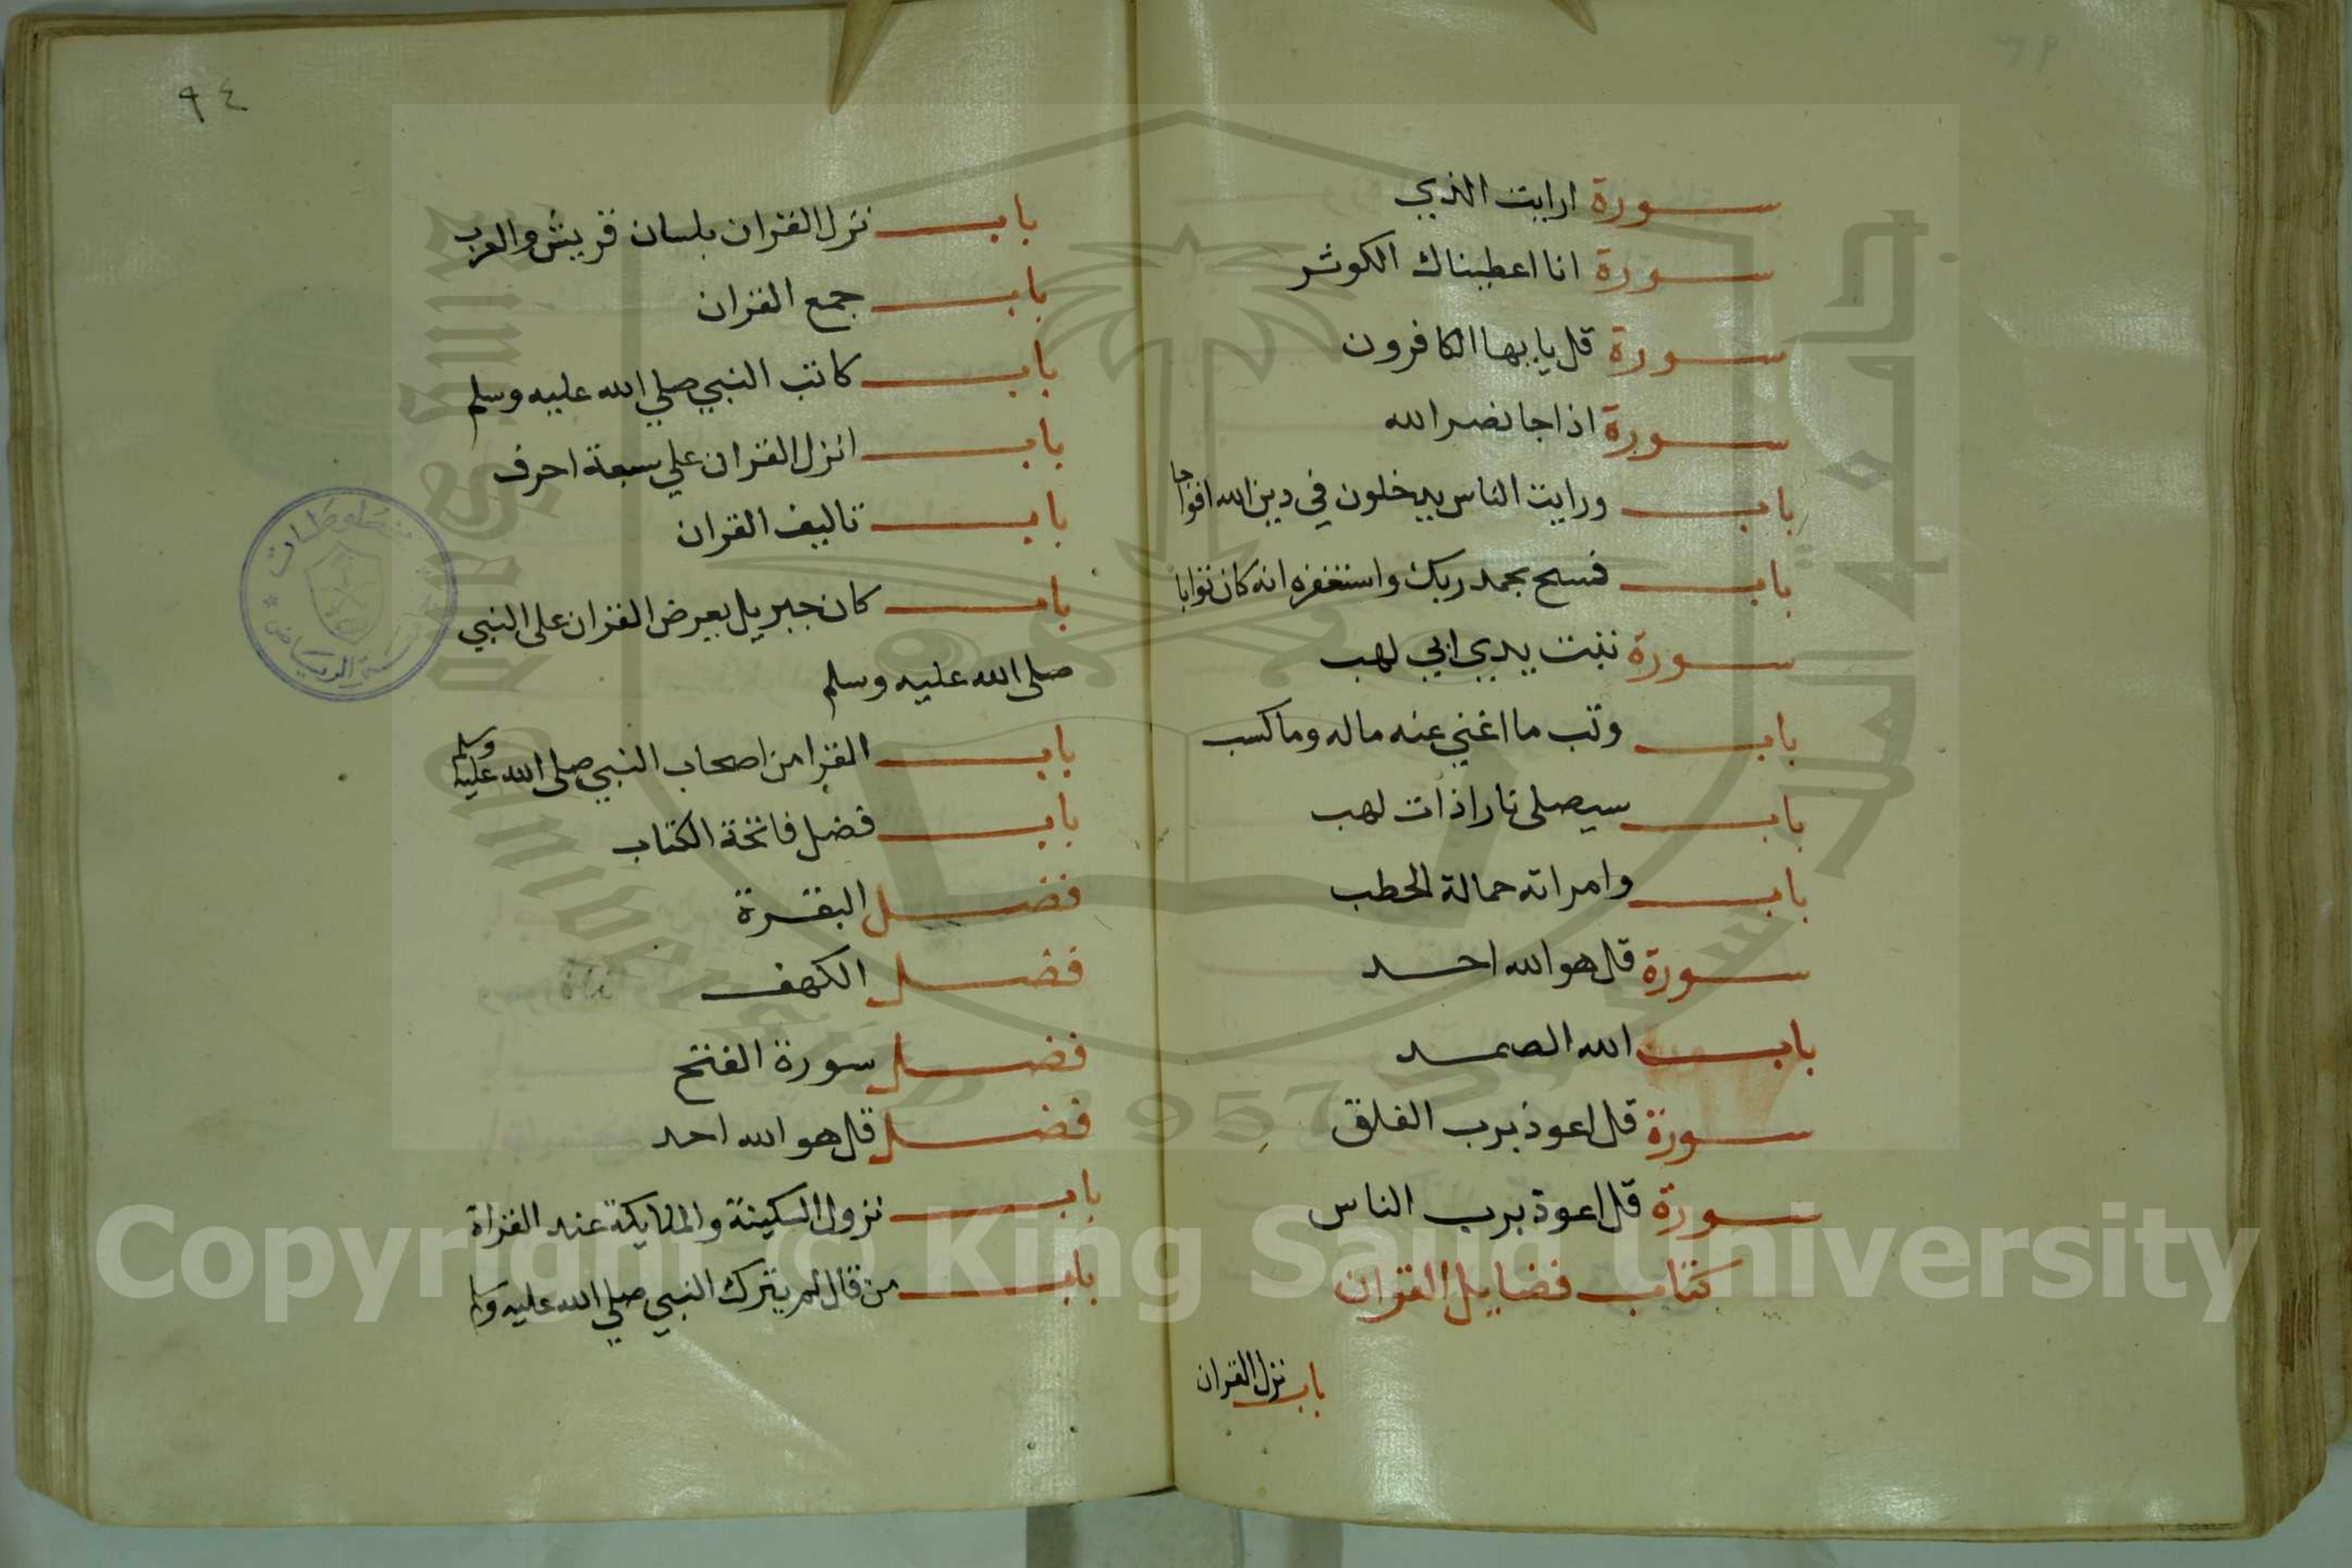 سورة ارايت الذي
سورة انا اعطيناك الكوثر
سورة قل يايها الكافرون
سورة اذا جا نصر الله
باب ورايت الناس يدخلون في دين الله افواجا
باب فسبح بحمد ربك واستغفره انه كان توابا
سورة تبت يدي ابي لهب
باب وتب ما اغني عنه ماله وما كسب
باب سيصلى نارا ذات لهب
باب وامراته حمالة الحطب
سورة قل هو الله احد
باب الله الصمد
سورة قل اعوذ برب الفلق
سورة قل اعوذ برب الناس
كتاب فضايل القران
باب نزل القران
٩٤
باب نزل القران بلسان قريش والعرب
باب جمع القران
باب كاتب النبي صلي الله عليه وسلم
باب انزل القران علي سبعة احرف
باب تاليف القران
باب كان جبريل يعرض القران على النبي
صلى الله عليه وسلم
باب القرا من اصحاب النبي صلى الله عليه وسلم
باب فضل فاتحة الكتاب
فضل البقرة
فضل الكهف
فضل سورة الفتح
فضل قل هو الله احد
باب نزول السكينة والملايكة عند القراة
باب من قال لم يترك النبي صلي الله عليه وسلم
جامعة الملك سعود
King Saud University
1957
Copyright © King Saud University